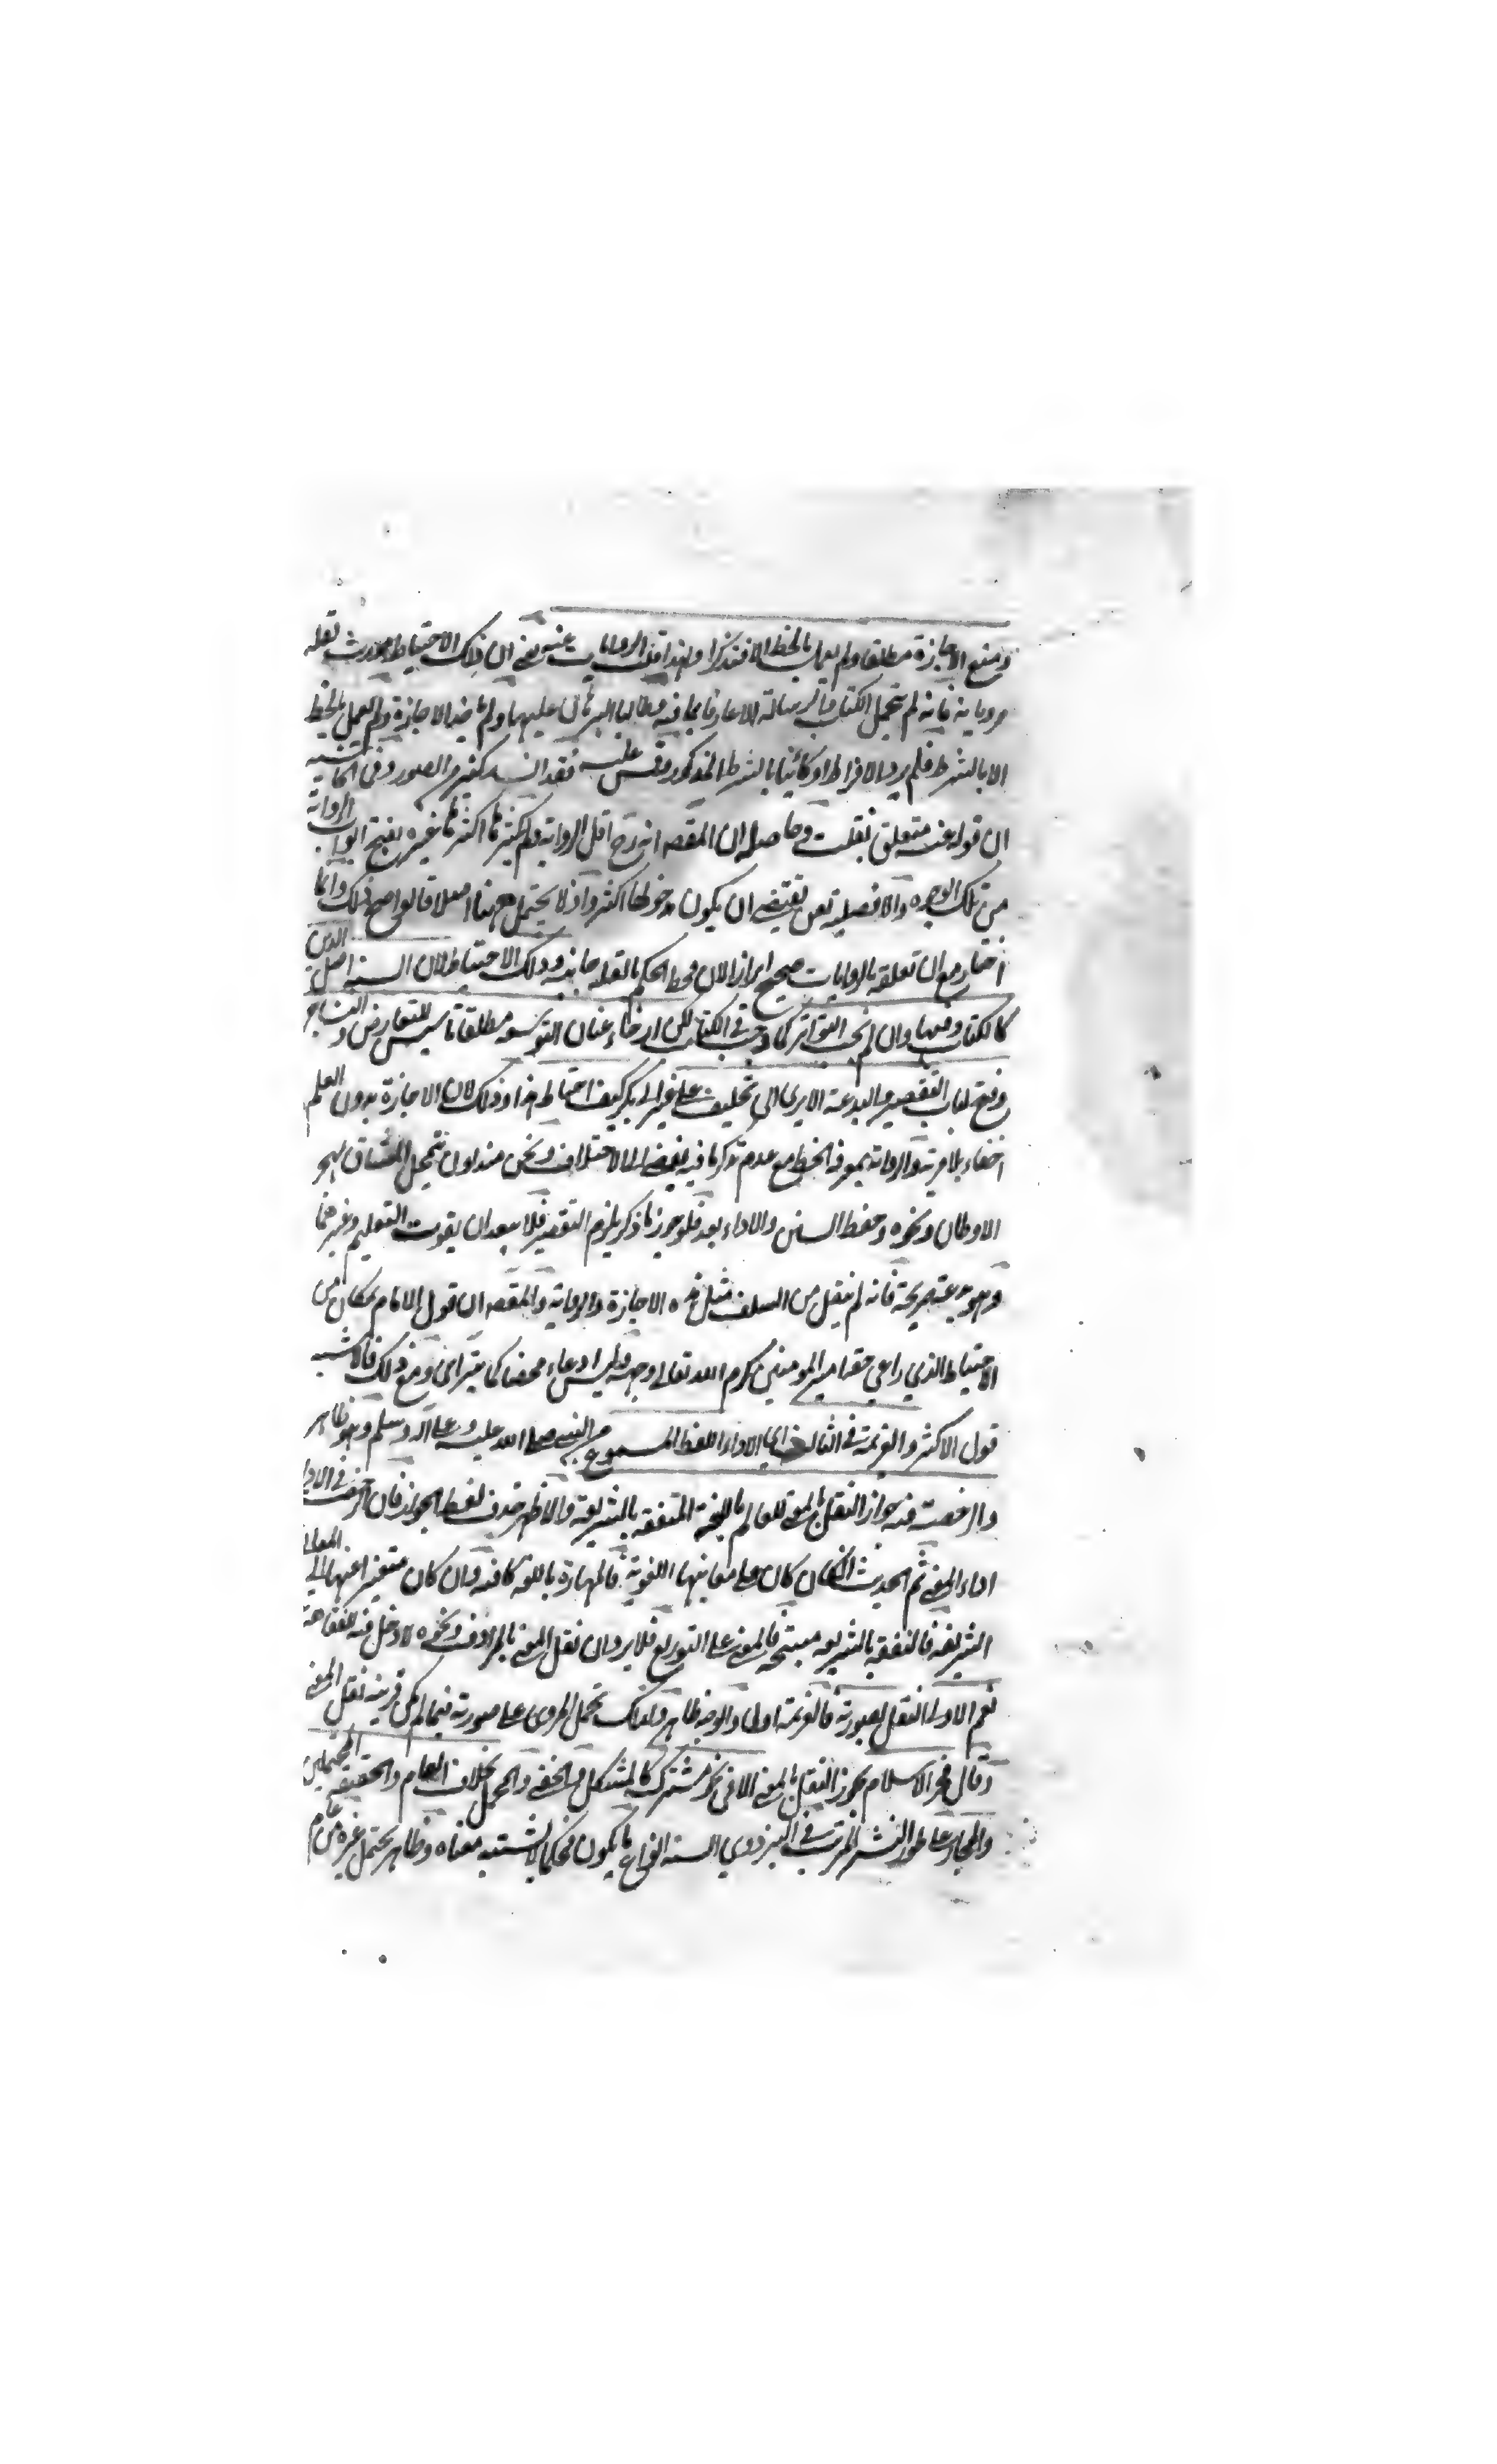 ومنع الاجازة مطلقا ولم يعمل بالخط الا متذكرا ولهذا قلت الروايات عنه يعني ان ذلك الاحتياط يورث تقله
مروياته فانه لم يتحمل الكتاب والرسالة الا عارفا بما فيه وطالبا البرهان عليها ولم الاجازة ولم العمل بالخط
الا بالشرط فلم يرو الافراط او كاتبا بالشرط المذكور وقس عليه فقد كثير من الصور وفى الحاشية
ان قوله عنه متعلق بقلت وحاصله ان المقصه انه رح اقل الرواية ولم يكثرها اكثرها غيره بفتح ابواب الرواية
من تلك الوجوه والافضلية تقتضي ان يكون دخولها اكثر واذ لا يحتمل ههنا اصلا قالوا صح ذلك وانما
اختار مع ان تعلقه بالروايات صحيح ابراز الان محط الحكم بالقلة جانبه وذلك الاحتياط لان السنة اصل الدين
كالكتاب وفيها وان لم نجب التواتر كما وجب في الكتاب لكن ارخاء عنان التوسعه مطلقا تاسيس للتعارض و
وفتح لباب التقصير والبدعة الا يرى الى تحليف علي غير ابي بكر كيف احتاط هذا وذلك لان الاجازة بدون العلم
اخفاء بلا مرية والرواية بمعرفة الخط مع عدم تذكر ما فيه يفضي الى الاختلاف ونحن مندوبون بتحمل المشاق لهجر
الاوطان ونحوه وحفظ السنن والاداء بعد فلو جوز ما ذكر يلزم التقصير فلا يبعد ان يفوت التعليم وغيرهما
وهو بدعة صريحة فانه لم ينقل من السلف مثل هذه الاجازة والرواية والمقصه ان قول الامام بمكان من
الاحتياط الذي راعى حقه امير المومنين كرم الله تعالى وجهه وليس ادعاء محضا كما يتراى ومع ذلك فالاشبه
قول الاكثر والعزيمة في الثالث اي الاداء اللفظ المسموع من النبي صلى الله عليه وعلى آله وسلم وهو ظاهر
والرخصة فيه جواز النقل بالمعنى للعالم باللغة المتفقه بالشريعة والاظهر حذف لفظ الجواز فان الرخصة في الاداء
اداء المعنى ثم الحديث ان كان على معانيها اللغوية فالمهارة باللغة كافية وان كان متغيرا عنها الى المعاني
الشريفة فالتفقه بالشريعة فالمعنى على التوزيع فلا يرد ان نقل المعنى بالمرادف ونحوه لا دخل فيه للفقاهة
نعم الاولى النقل بصورته فالعزيمة اولى والوجه ظاهر ولذلك تحمل المروى على صورته فيما لم يكن قرينة نقل المعنى
وقال فخر الاسلام يجوز النقل بالمعنى الا في نحو مشترك كالمشكل والخفي والمجمل بخلاف العام والحقيقة المحتملين
والمجاز على طور النشر المرتب في البزدوي السنة انواع ما يكون محكما لا يشتبه معناه وظاهر يحتمل غيره من عام